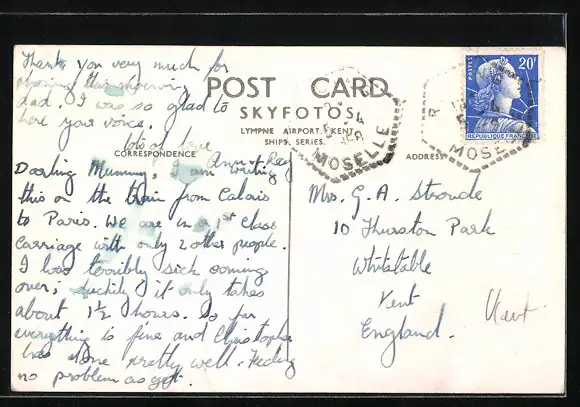 Thank you very much for
phoning this morning
dad. I was so glad to
hear your voice.
lots of love
POST CARD
SKYFOTOS
LYMPNE AIRPORT, KENT.
SHIPS. SERIES.
CORRESPONDENCE
ADDRESS
Darling Mummy, I am writing
this on the train from Calais
to Paris. We are in a 1st class
carriage with only 2 other people.
I was terribly sick coming
over; luckily it only takes
about 1½ hours. So far
everything is fine and Christopher
has done pretty well. Feeding
no problem as yet.
Mrs. G. A. Stroude
10 Thurston Park
Whitstable
Kent
England.
Kent
MOSELLE
POSTES
20F
REPUBLIQUE FRANCAISE
MOSELLE